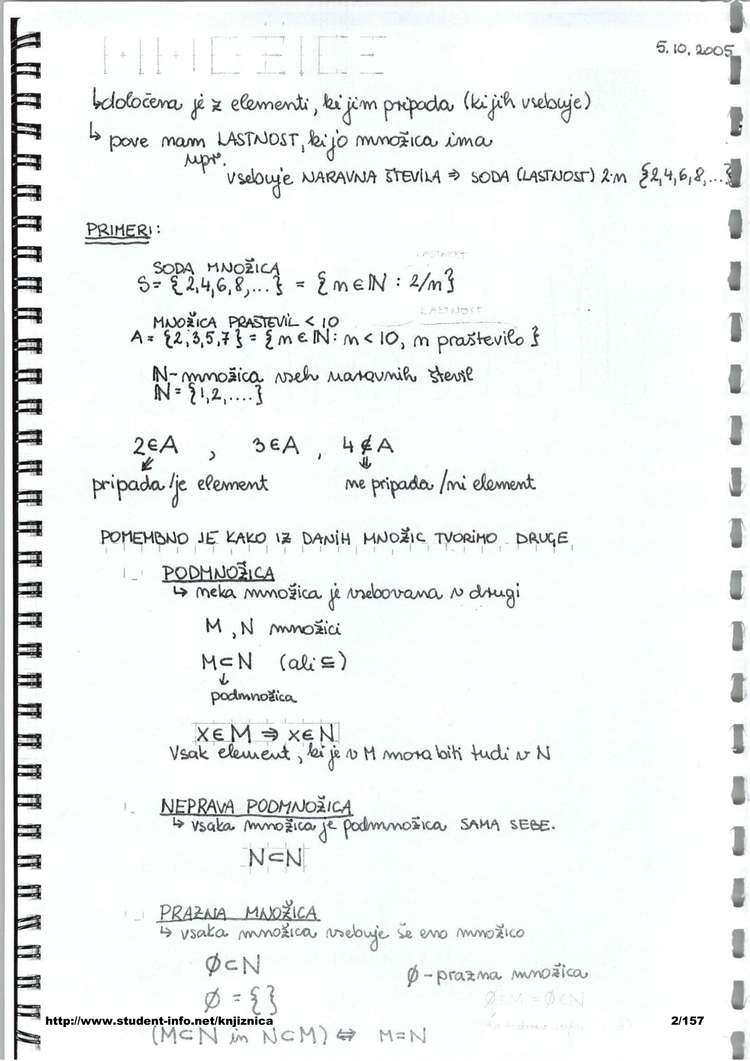 MNOŽICE
5.10.2005
↳ določena je z elementi, ki jim pripada (ki jih vsebuje)
↳ pove nam LASTNOST, ki jo množica ima
npr.
vsebuje NARAVNA ŠTEVILA ⇒ SODA (LASTNOST) 2·n {2,4,6,8,...}
PRIMERI:
SODA MNOŽICA
S = {2,4,6,8,...} = {n∈ℕ : 2/n}
MNOŽICA PRAŠTEVIL < 10
A = {2,3,5,7} = {n∈ℕ: n < 10, n praštevilo}
ℕ - množica vseh naravnih števil
ℕ = {1,2,....}
2∈A , 3∈A , 4∉A
pripada/je element ne pripada/ni element
POMEMBNO JE KAKO IZ DANIH MNOŽIC TVORIMO DRUGE
PODMNOŽICA
↳ neka množica je vsebovana v drugi
M, N množici
M⊂N (ali ⊆)
↓
podmnožica
x∈M ⇒ x∈N
Vsak element, ki je v M mora biti tudi v N
NEPRAVA PODMNOŽICA
↳ vsaka množica je podmnožica SAMA SEBE.
N⊂N
PRAZNA MNOŽICA
↳ vsaka množica vsebuje še eno množico
∅⊂N
∅ - prazna množica
∅ = {}
http://www.student-info.net/knjiznica 2/157
(M⊂N in N⊂M) ⇔ M=N